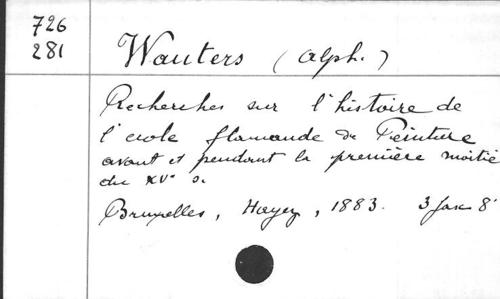 726
281
Wauters (Alph.)
Recherches sur l'histoire de
l'école flamande de Peinture
avant et pendant la première moitié
du XVe s.
Bruxelles, Hayez, 1883. 3 fasc 8°